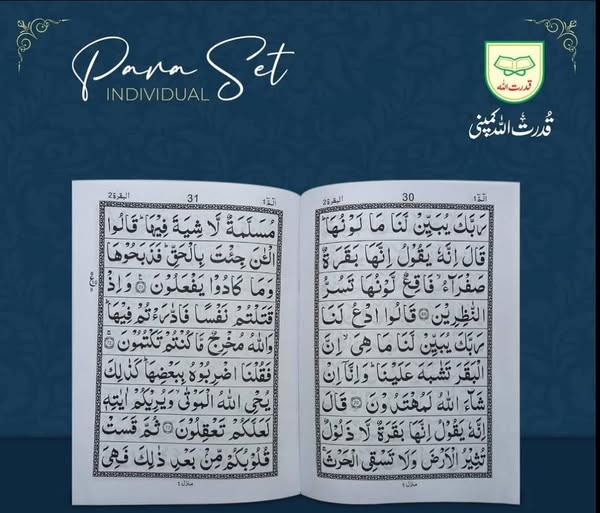 Para Set
INDIVIDUAL
قدرت اللہ
قُدرت اللہ کمپنی
البقرة ٢
30
الٓمّٓ ١
رَبَّكَ يُبَيِّنْ لَّنَا مَا لَوْنُهَا ؕ
قَالَ اِنَّهٗ يَقُوْلُ اِنَّهَا بَقَرَةٌ
صَفْرَآءُ ۙ فَاقِعٌ لَّوْنُهَا تَسُرُّ
النّٰظِرِيْنَ ۝ قَالُوا ادْعُ لَنَا
رَبَّكَ يُبَيِّنْ لَّنَا مَا هِىَ ۙ اِنَّ
الْبَقَرَ تَشٰبَهَ عَلَيْنَا ؕ وَاِنَّاۤ اِنْ
شَآءَ اللّٰهُ لَمُهْتَدُوْنَ ۝ قَالَ
اِنَّهٗ يَقُوْلُ اِنَّهَا بَقَرَةٌ لَّا ذَلُوْلٌ
تُثِيْرُ الْاَرْضَ وَلَا تَسْقِى الْحَرْثَ ۚ
منزل ١
البقرة ٢
31
الٓمّٓ ١
مُسَلَّمَةٌ لَّا شِيَةَ فِيْهَا ؕ قَالُوا
الْـٰٔنَ جِئْتَ بِالْحَقِّ ؕ فَذَبَحُوْهَا
وَمَا كَادُوْا يَفْعَلُوْنَ ۝ وَاِذْ
قَتَلْتُمْ نَفْسًا فَادّٰرَءْتُمْ فِيْهَا ؕ
وَاللّٰهُ مُخْرِجٌ مَّا كُنْتُمْ تَكْتُمُوْنَ ۝
فَقُلْنَا اضْرِبُوْهُ بِبَعْضِهَا ؕ كَذٰلِكَ
يُحْىِ اللّٰهُ الْمَوْتٰى ۙ وَيُرِيْكُمْ اٰيٰتِهٖ
لَعَلَّكُمْ تَعْقِلُوْنَ ۝ ثُمَّ قَسَتْ
قُلُوْبُكُمْ مِّنْۢ بَعْدِ ذٰلِكَ فَهِىَ
منزل ١